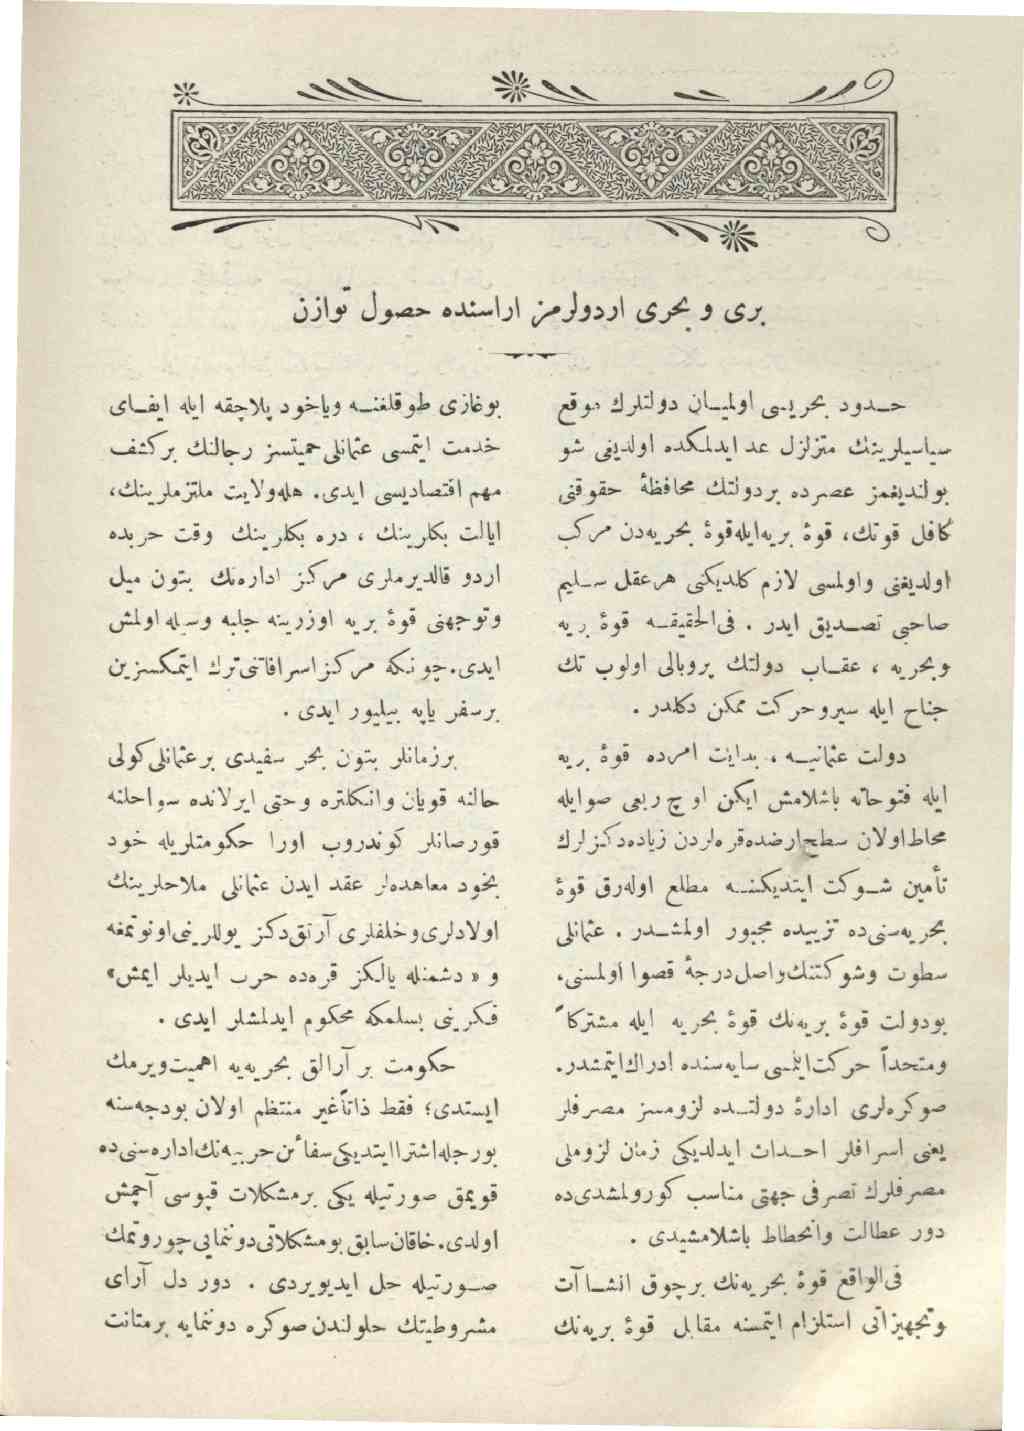 بری و بحری اردولرمز اراسنده حصول توازن
حدود بحریسی اولمیان دولتلرك موقع
سیاسیلرینك متزلزل عد ایدلمكده اولدیغی شو
بولندیغمز عصرده بر دولتك محافظهٔ حقوقنی
كافل قوتك، قوهٔ بریه ایله قوهٔ بحریه‌دن مركب
اولدیغنی واولمسی لازم كلدیكنی هر عقل سلیم
صاحبی تصدیق ایدر . فی‌الحقیقه قوهٔ بریه
وبحریه ، عقاب دولتك پروبالی اولوب تك
جناح ایله سیروحركت ممكن دكلدر .
دولت عثمانیه ، بدایت امرده قوهٔ بریه
ایله فتوحاته باشلامش ایكن اوچ ربعی صوایله
محاط اولان سطح ارضده قره‌لردن زیاده دكزلرك
تأمین شوكت ایتدیكنه مطلع اوله‌رق قوهٔ
بحریه‌سنی‌ده تزییده مجبور اولمشدر . عثمانلی
سطوت وشوكتنك واصل درجهٔ قصوا اولمسنی،
بودولت قوهٔ بریه‌نك قوهٔ بحریه ایله مشتركاً
ومتحداً حركت ایلمسی سایه‌سنده ادراك ایتمشدر.
صوكره‌لری ادارهٔ دولتده لزومسز مصرفلر
یعنی اسرافلر احداث ایدلدیكی زمان لزوملی
مصرفلرك تصرفی جهتی مناسب كورولمشدی‌ده
دور عطالت وانحطاط باشلامشیدی .
فی‌الواقع قوهٔ بحریه‌نك برچوق انشاآت
وتجهیزاتی استلزام ایتمسنه مقابل قوهٔ بریه‌نك
بوغازی طوقلغنه ویاخود پلاچقه ایله ایفای
خدمت ایتمسی عثمانلی حمیتسز رجالنك بر كشف
مهم اقتصادیسی ایدی. هله ولایت ملتزملرینك،
ایالت بكلرینك ، دره بكلرینك وقت حربده
اردو قالدیرملری مركز اداره‌نك بتون میل
وتوجهنی قوهٔ بریه اوزرینه جلبه وسیله اولمش
ایدی. چونكه مركز اسرافاتنی ترك ایتمكسزین
برسفر یاپه بیلیور ایدی .
برزمانلر بتون بحر سفیدی بر عثمانلی كولی
حالنه قویان وانكلتره وحتی ایرلانده سواحلنه
قورصانلر كوندروب اورا حكومتلریله خود
بخود معاهده‌لر عقد ایدن عثمانلی ملاحلرینك
اولادلری وخلفلری آرتق دكز یوللرینی اونوتمغه
و « دشمنله یالكز قره‌ده حرب ایدیلر ایمش»
فكرینی بسلمكه محكوم ایدلمشلر ایدی .
حكومت بر آرالق بحریه‌یه اهمیت ویرمك
ایستدی؛ فقط ذاتاً غیر منتظم اولان بودجه‌سنه
بورجله اشترا ایتدیكی سفائن حربیه‌نك اداره‌سنی‌ده
قویمق صورتیله یكی بر مشكلات قپوسی آچمش
اولدی. خاقان سابق بو مشكلاتی دوننمایی چوروتمك
صورتیله حل ایدیویردی . دور دل آرای
مشروطیتك حلولندن صوكره دوننمایه بر متانت